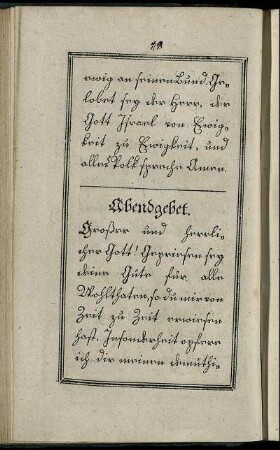 28
ewig an seinen Bund. Ge-
lobet sey der Herr, der
Gott Israel von Ewig-
keit zu Ewigkeit, und
alles Volk spreche Amen.
Abendgebet.
Großer und herrli-
cher Gott! Gepriesen sey
deine Güte für alle
Wohlthaten, so du mir von
Zeit zu Zeit erwiesen
hast. Insonderheit opfere
ich dir meinen demüthi-